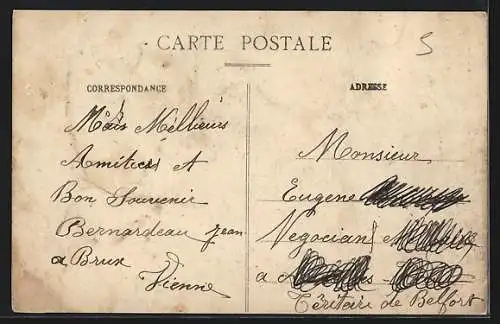 CARTE POSTALE
5
CORRESPONDANCE
Mais Méllieurs
Amitiees et
Bon Souvenir
Bernardeau Jean
a Brux
Vienne
ADRESSE
Monsieur
Eugene
Negociant
a
Téritoire de Belfort